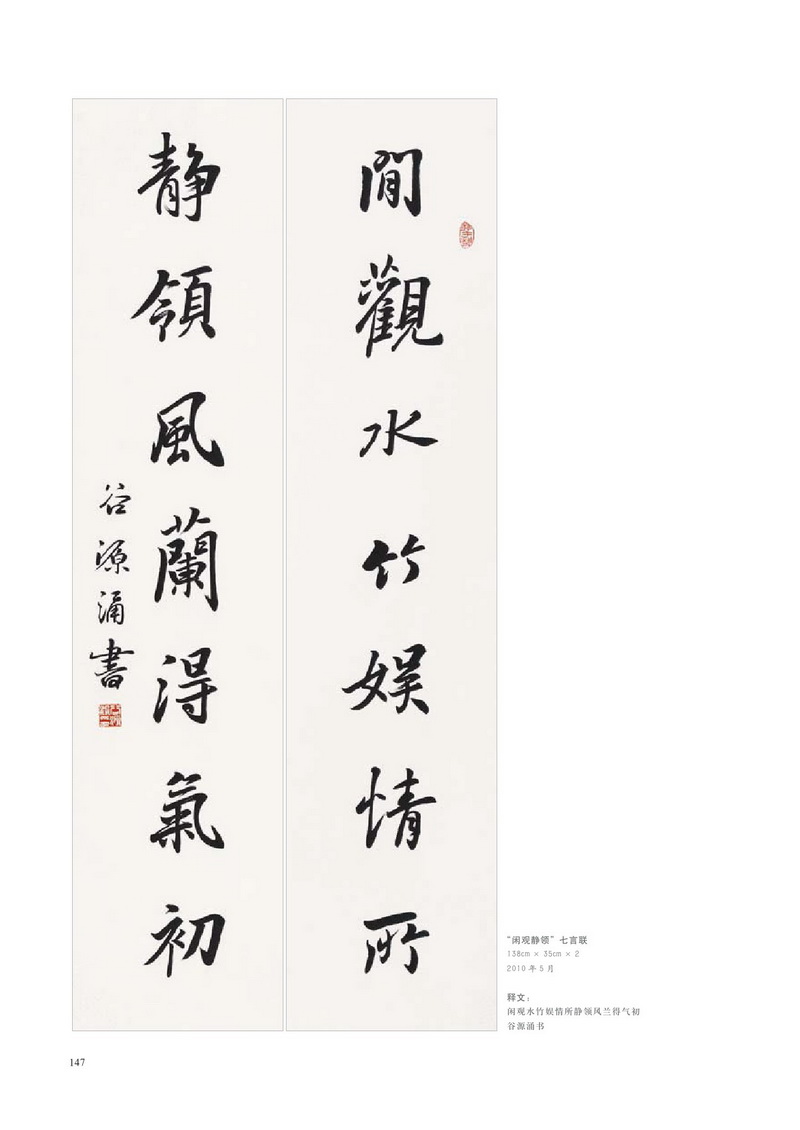 閒觀水竹娱情所
静領風蘭淂氣初
谷源涌書
“闲观静领”七言联
138cm × 35cm × 2
2010 年 5 月
释文：
闲观水竹娱情所静领风兰得气初
谷源涌书
147